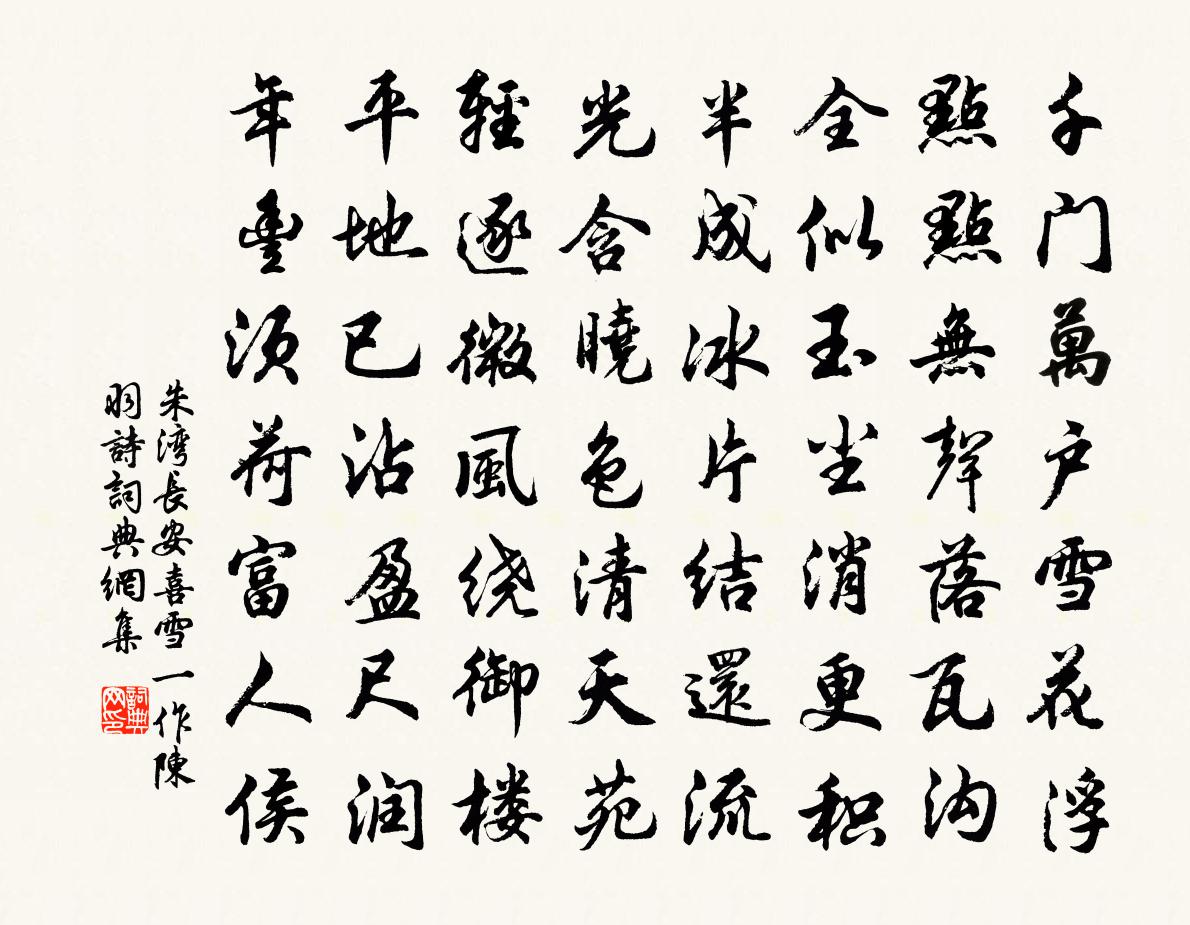 千门萬户雪花浮
點點無聲落瓦沟
全似玉尘消更积
半成冰片结還流
光含曉色清天苑
輕逐微風绕御楼
平地已沾盈尺润
年豐须荷富人侯
朱湾長安喜雪一作陳
羽詩詞典網集
詞典
网印